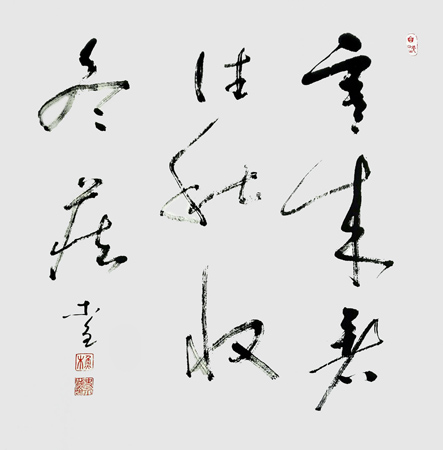 寒来暑
往秋收
冬藏